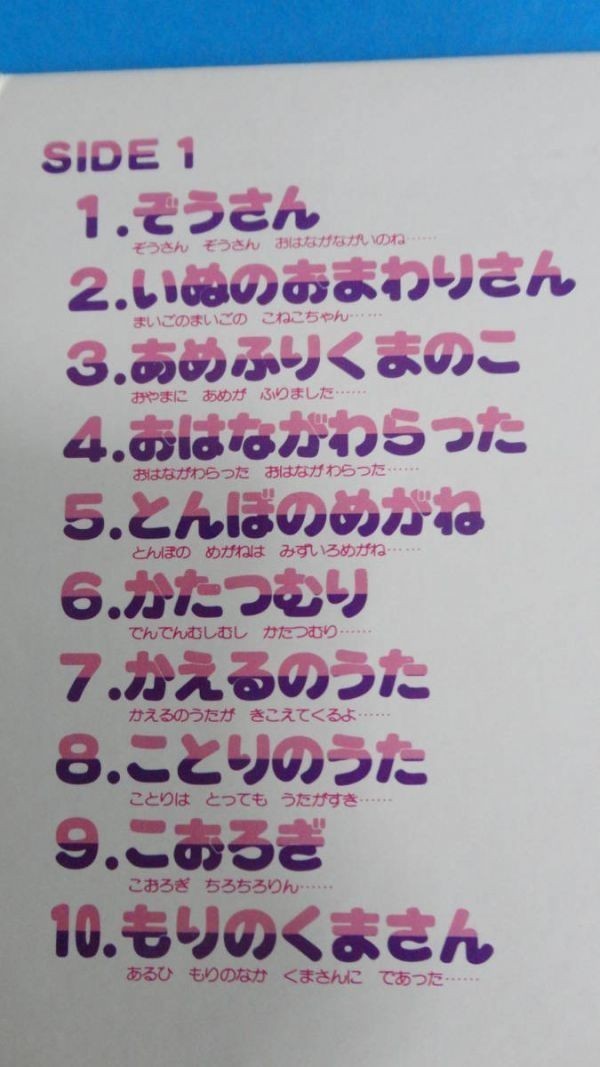 SIDE 1
1.ぞうさん
ぞうさん ぞうさん おはながながいのね……
2.いぬのおまわりさん
まいごのまいごの こねこちゃん……
3.あめふりくまのこ
おやまに あめが ふりました……
4.おはながわらった
おはながわらった おはながわらった……
5.とんぼのめがね
とんぼの めがねは みずいろめがね……
6.かたつむり
でんでんむしむし かたつむり……
7.かえるのうた
かえるのうたが きこえてくるよ……
8.ことりのうた
ことりは とっても うたがすき……
9.こおろぎ
こおろぎ ちろちろりん……
10.もりのくまさん
あるひ もりのなか くまさんに であった……